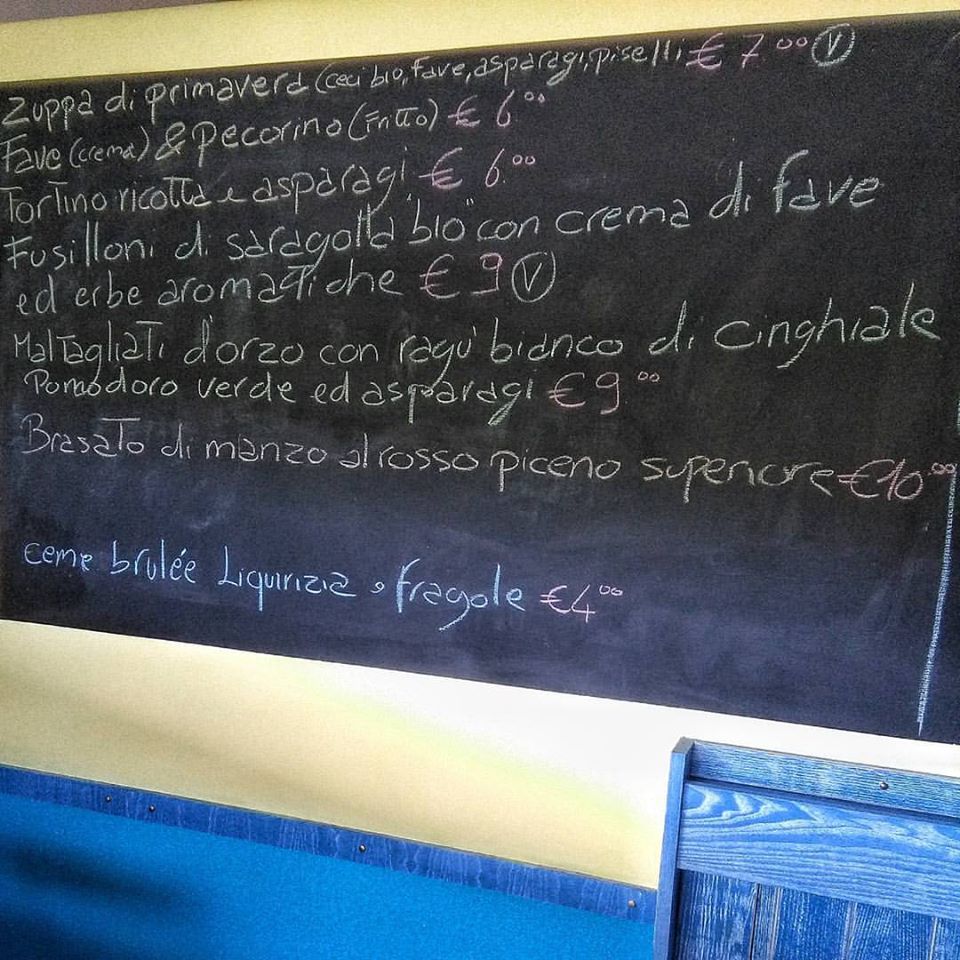 Zuppa di primavera (ceci bio, fave, asparagi, piselli € 7.00 V
Fave (crema) & Pecorino (Fritto) € 6.00
Tortino ricotta e asparagi € 6.00
Fusilloni di saragolla "bio" con crema di fave
ed erbe aromatiche € 9 V
Maltagliati d'orzo con ragu' bianco di cinghiale
Pomodoro verde ed asparagi € 9 00
Brasato di manzo al rosso piceno superiore € 10.00
creme brulée Liquirizia e fragole € 4 00